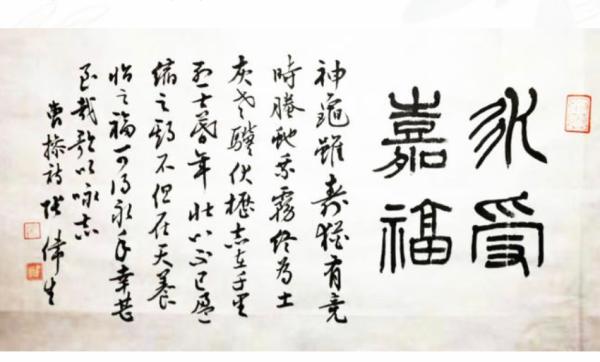 永受
嘉福
神龜雖壽猶有竟
時騰蛇乘霧終為土
灰老驥伏櫪志在千里
烈士暮年壯心不已盈
縮之期不但在天養
怡之福可得永年幸甚
至哉歌以咏志
曹操詩 張偉生